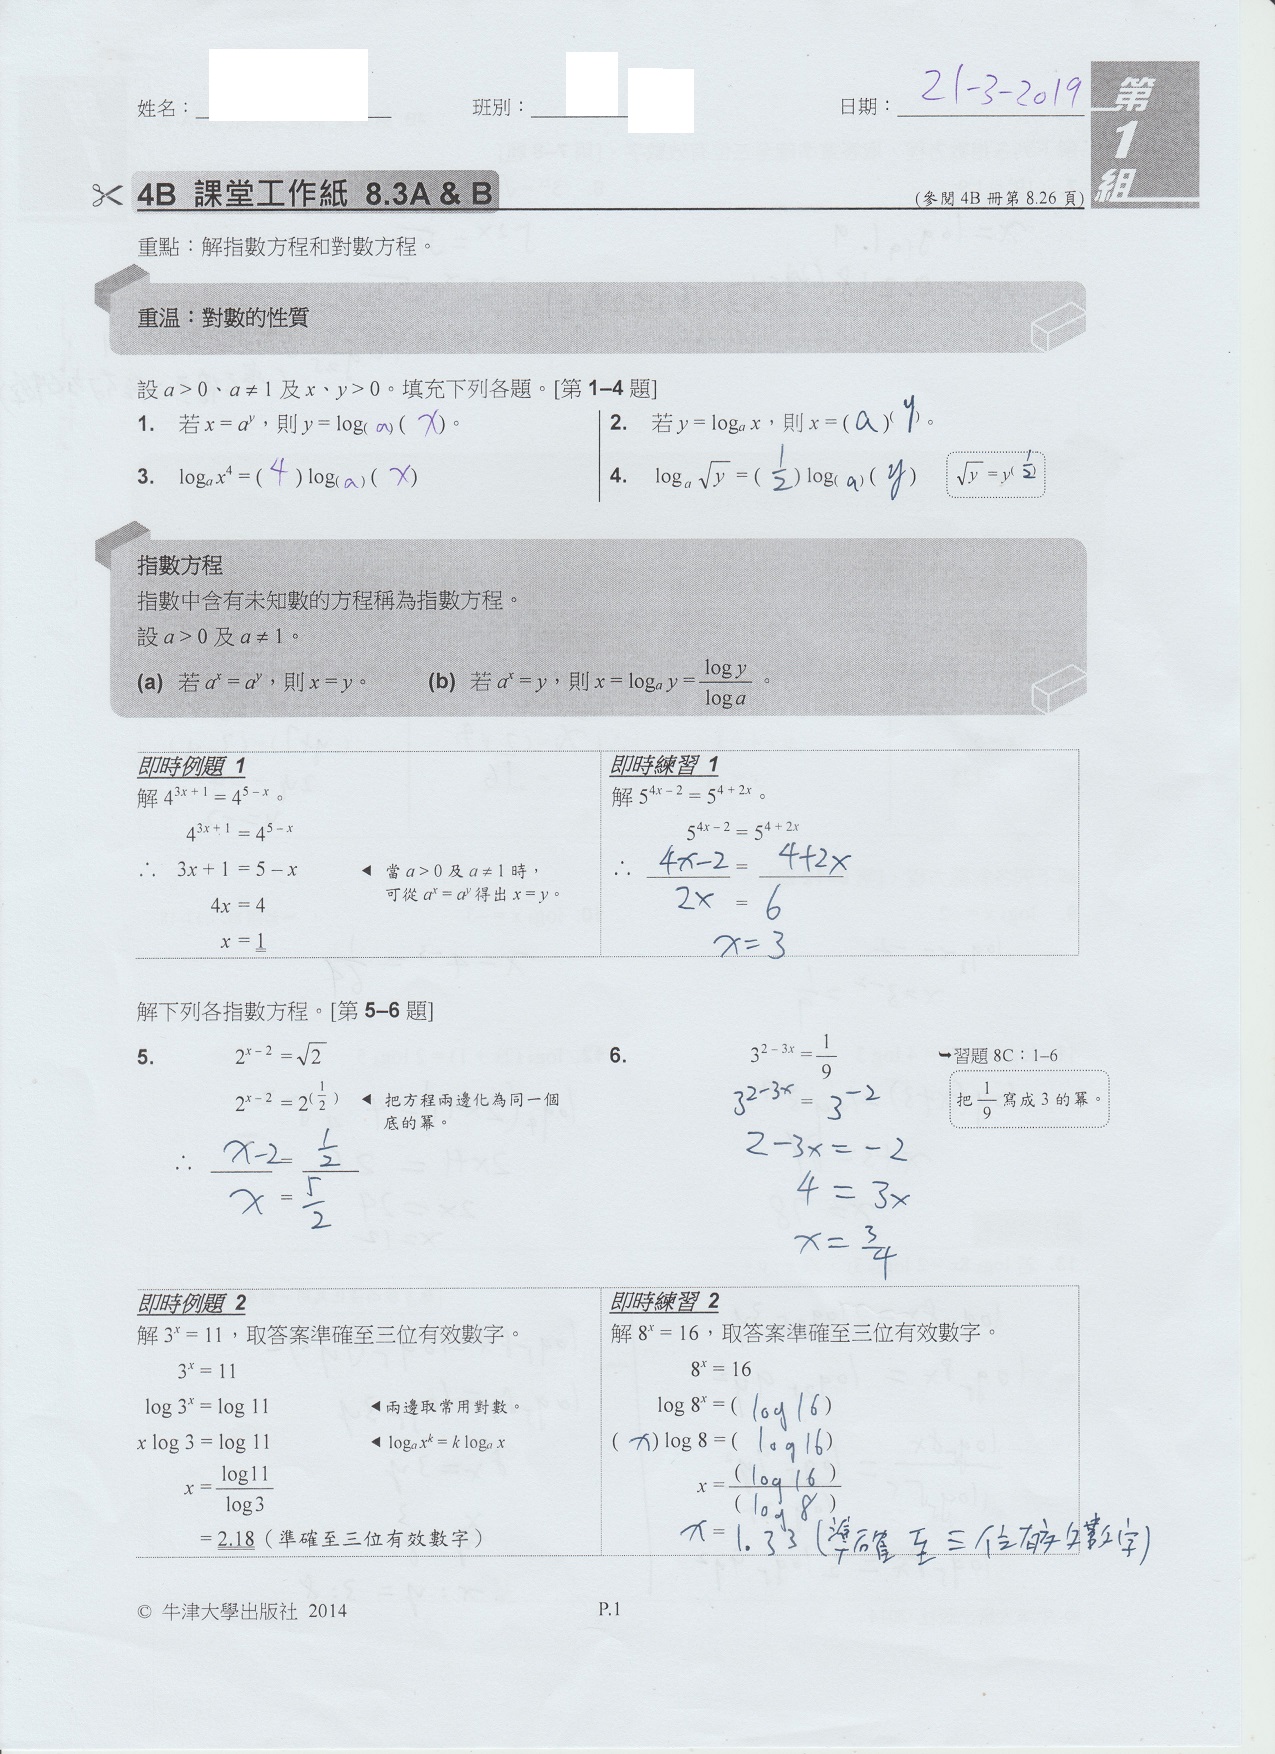 姓名：
班別：
日期：21-3-2019
第1組
4B 課堂工作紙 8.3A & B
(參閱 4B 冊第 8.26 頁)
重點：解指數方程和對數方程。
重温：對數的性質
設 a > 0、a ≠ 1 及 x、y > 0。填充下列各題。[第 1–4 題]
1. 若 x = a^y，則 y = log₍ a ₎ ( x )。
2. 若 y = logₐ x，則 x = ( a )^( y )。
3. logₐ x⁴ = ( 4 ) log₍ a ₎ ( x )
4. logₐ √y = ( 1/2 ) log₍ a ₎ ( y )
√y = y^( 1/2 )
指數方程
指數中含有未知數的方程稱為指數方程。
設 a > 0 及 a ≠ 1。
(a) 若 a^x = a^y，則 x = y。
(b) 若 a^x = y，則 x = logₐ y = log y / log a。
即時例題 1
解 4^(3x + 1) = 4^(5 – x)。
4^(3x + 1) = 4^(5 – x)
∴ 3x + 1 = 5 – x
◀ 當 a > 0 及 a ≠ 1 時，
可從 a^x = a^y 得出 x = y。
4x = 4
x = 1
即時練習 1
解 5^(4x – 2) = 5^(4 + 2x)。
5^(4x – 2) = 5^(4 + 2x)
∴ 4x-2 = 4+2x
2x = 6
x = 3
解下列各指數方程。[第 5–6 題]
5. 2^(x – 2) = √2
2^(x – 2) = 2^(1/2)
◀ 把方程兩邊化為同一個
底的冪。
∴ x-2 = 1/2
x = 5/2
6. 3^(2 – 3x) = 1/9
➥習題 8C：1–6
把 1/9 寫成 3 的冪。
3^(2-3x) = 3^(-2)
2-3x = -2
4 = 3x
x = 3/4
即時例題 2
解 3^x = 11，取答案準確至三位有效數字。
3^x = 11
log 3^x = log 11
◀兩邊取常用對數。
x log 3 = log 11
◀ logₐ x^k = k logₐ x
x = log 11 / log 3
= 2.18（準確至三位有效數字）
即時練習 2
解 8^x = 16，取答案準確至三位有效數字。
8^x = 16
log 8^x = ( log 16 )
( x ) log 8 = ( log 16 )
x = ( log 16 ) / ( log 8 )
x = 1.33 (準確至三位有效數字)
© 牛津大學出版社 2014
P.1